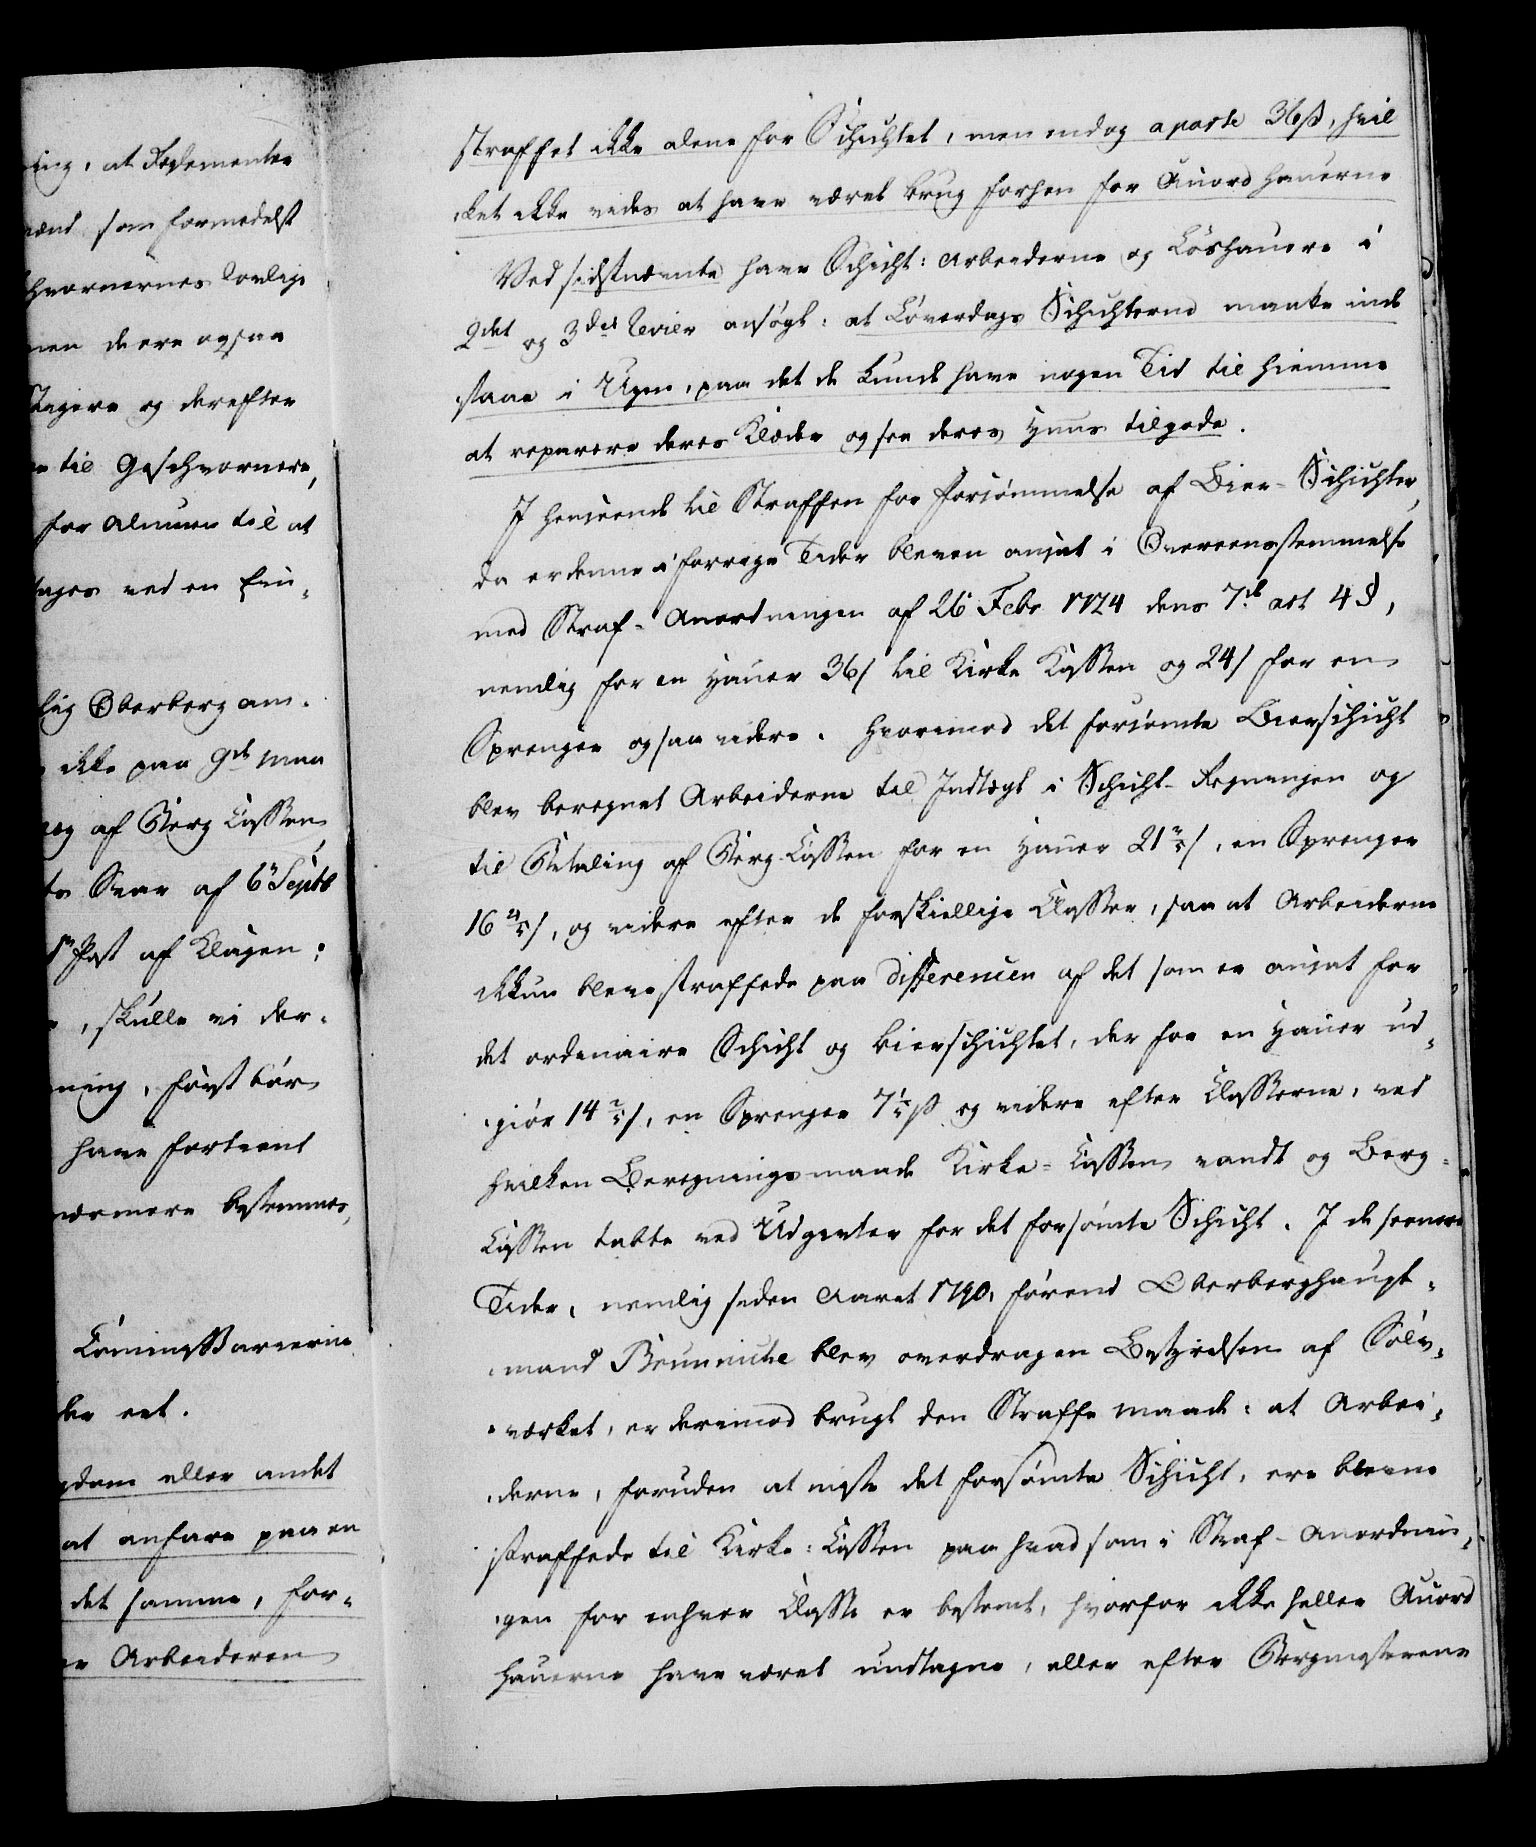 ning, at Reglementer
mænd som formedelst
Geschvornernes lovlige
men de ere ogsaa
Stigere og derefter
til Geschvornere,
for Almuen til at
tages ved en Ein-
lig Oberbergam-
ikke paa 9de maa
af Berg Cassen
Svar af 6te Septb
1te Post af Klagen:
, skulle vi der-
ning, først bør
have fortient
nærmere bestemmes,
Commissarierne
der eet.
gdom eller andet
at anfare paa en
det samme, for-
Arbeideren
straffet ikke alene for Schichtet, men endog aparte 36ß, hvil
ket ikke vides at have været brug forhen for Akord hauerne
Ved sidstnævnte have Schicht: Arbeiderne og Løshauere i
2det og 3die Revier ansøgt: at Løverdags Schichterne maatte ind
staae i Ugen, paa det de kunde have nogen Tid til hiemme
at reparere deres Klæder og see deres Huus tilgode.
I henseende til Straffen for forsømmelse af Bier-Schichter,
da er denne i forrige Tider bleven ansat i Overeensstemmelse
med Straf-Anordningen af 26 Febr 1774 dens 7de art 4§,
nemlig for en Hauer 36ß til Kirke Kassen og 24ß for en
Sprenger og saa videre. Hvorimod det forsømte Bierschicht
blev beregnet Arbeiderne til Indtægt i Schicht-Regningen og
til Betaling af Berg-Cassen for en Hauer 21 3/5ß, en Sprenger
16 4/5ß, og videre efter de forskiellige Classer, saa at Arbeiderne
ikkun bleve straffede paa differencen af det som er ansat for
det ordinaire Schicht og bierschichtet, der for en Hauer ud-
giør 14 2/5ß, en Sprenger 7 1/5ß og videre efter Classerne, ved
hvilken Beregnings maade Kirke-Cassen vandt og Berg-
Cassen tabte ved Udgivter for det forsømte Schicht. I de seenere
Tider, nemlig siden Aaret 1790, førend Oberberghaupt-
mand Brünniche blev overdragen Bestyrelsen af Sølv-
værket, er derimod brugt den Straffe maade: at Arbei-
derne, foruden at miste det forsømte Schicht, ere blevne
straffede til Kirke-Cassen paa hvad som i Straf-Anordnin-
gen for enhver Classe er bestemt, hvorfor ikke heller Akord
hauerne have været undtagne, eller efter Bergmesterens